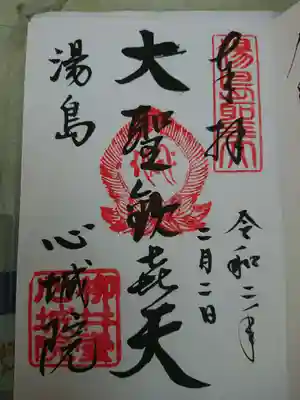 奉拝
令和二年
二月二日
大聖歓喜天
湯島
心城院
湯島聖天